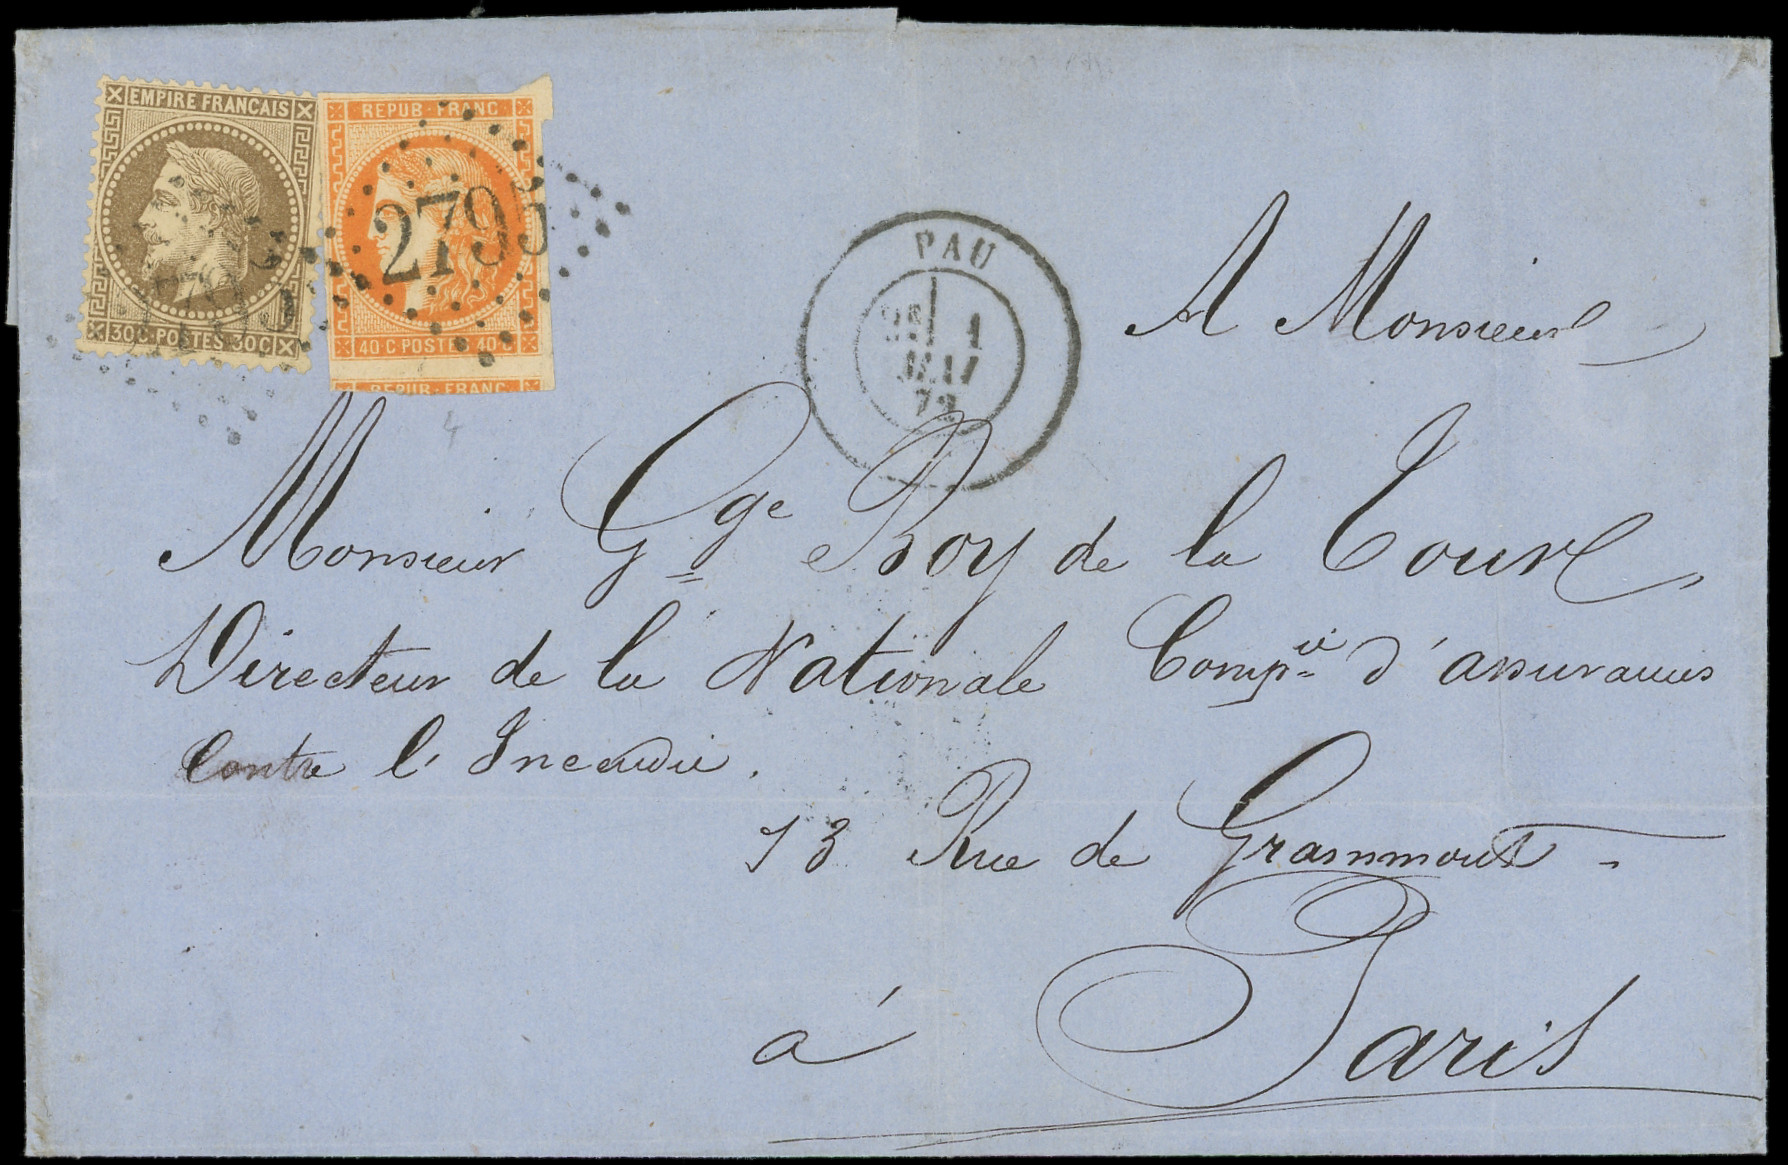 EMPIRE FRANCAIS
30C·POSTES·30C
2795
REPUB·FRANC
40·C POSTES 40·C
2795
REPUB·FRANC
PAU
1
MAI
72
4
A Monsieur
Monsieur Gge Roy de la Tour
Directeur de la Nationale Compie d'assurances
Contre l'Incendie.
13 Rue de Grammont -
à Paris